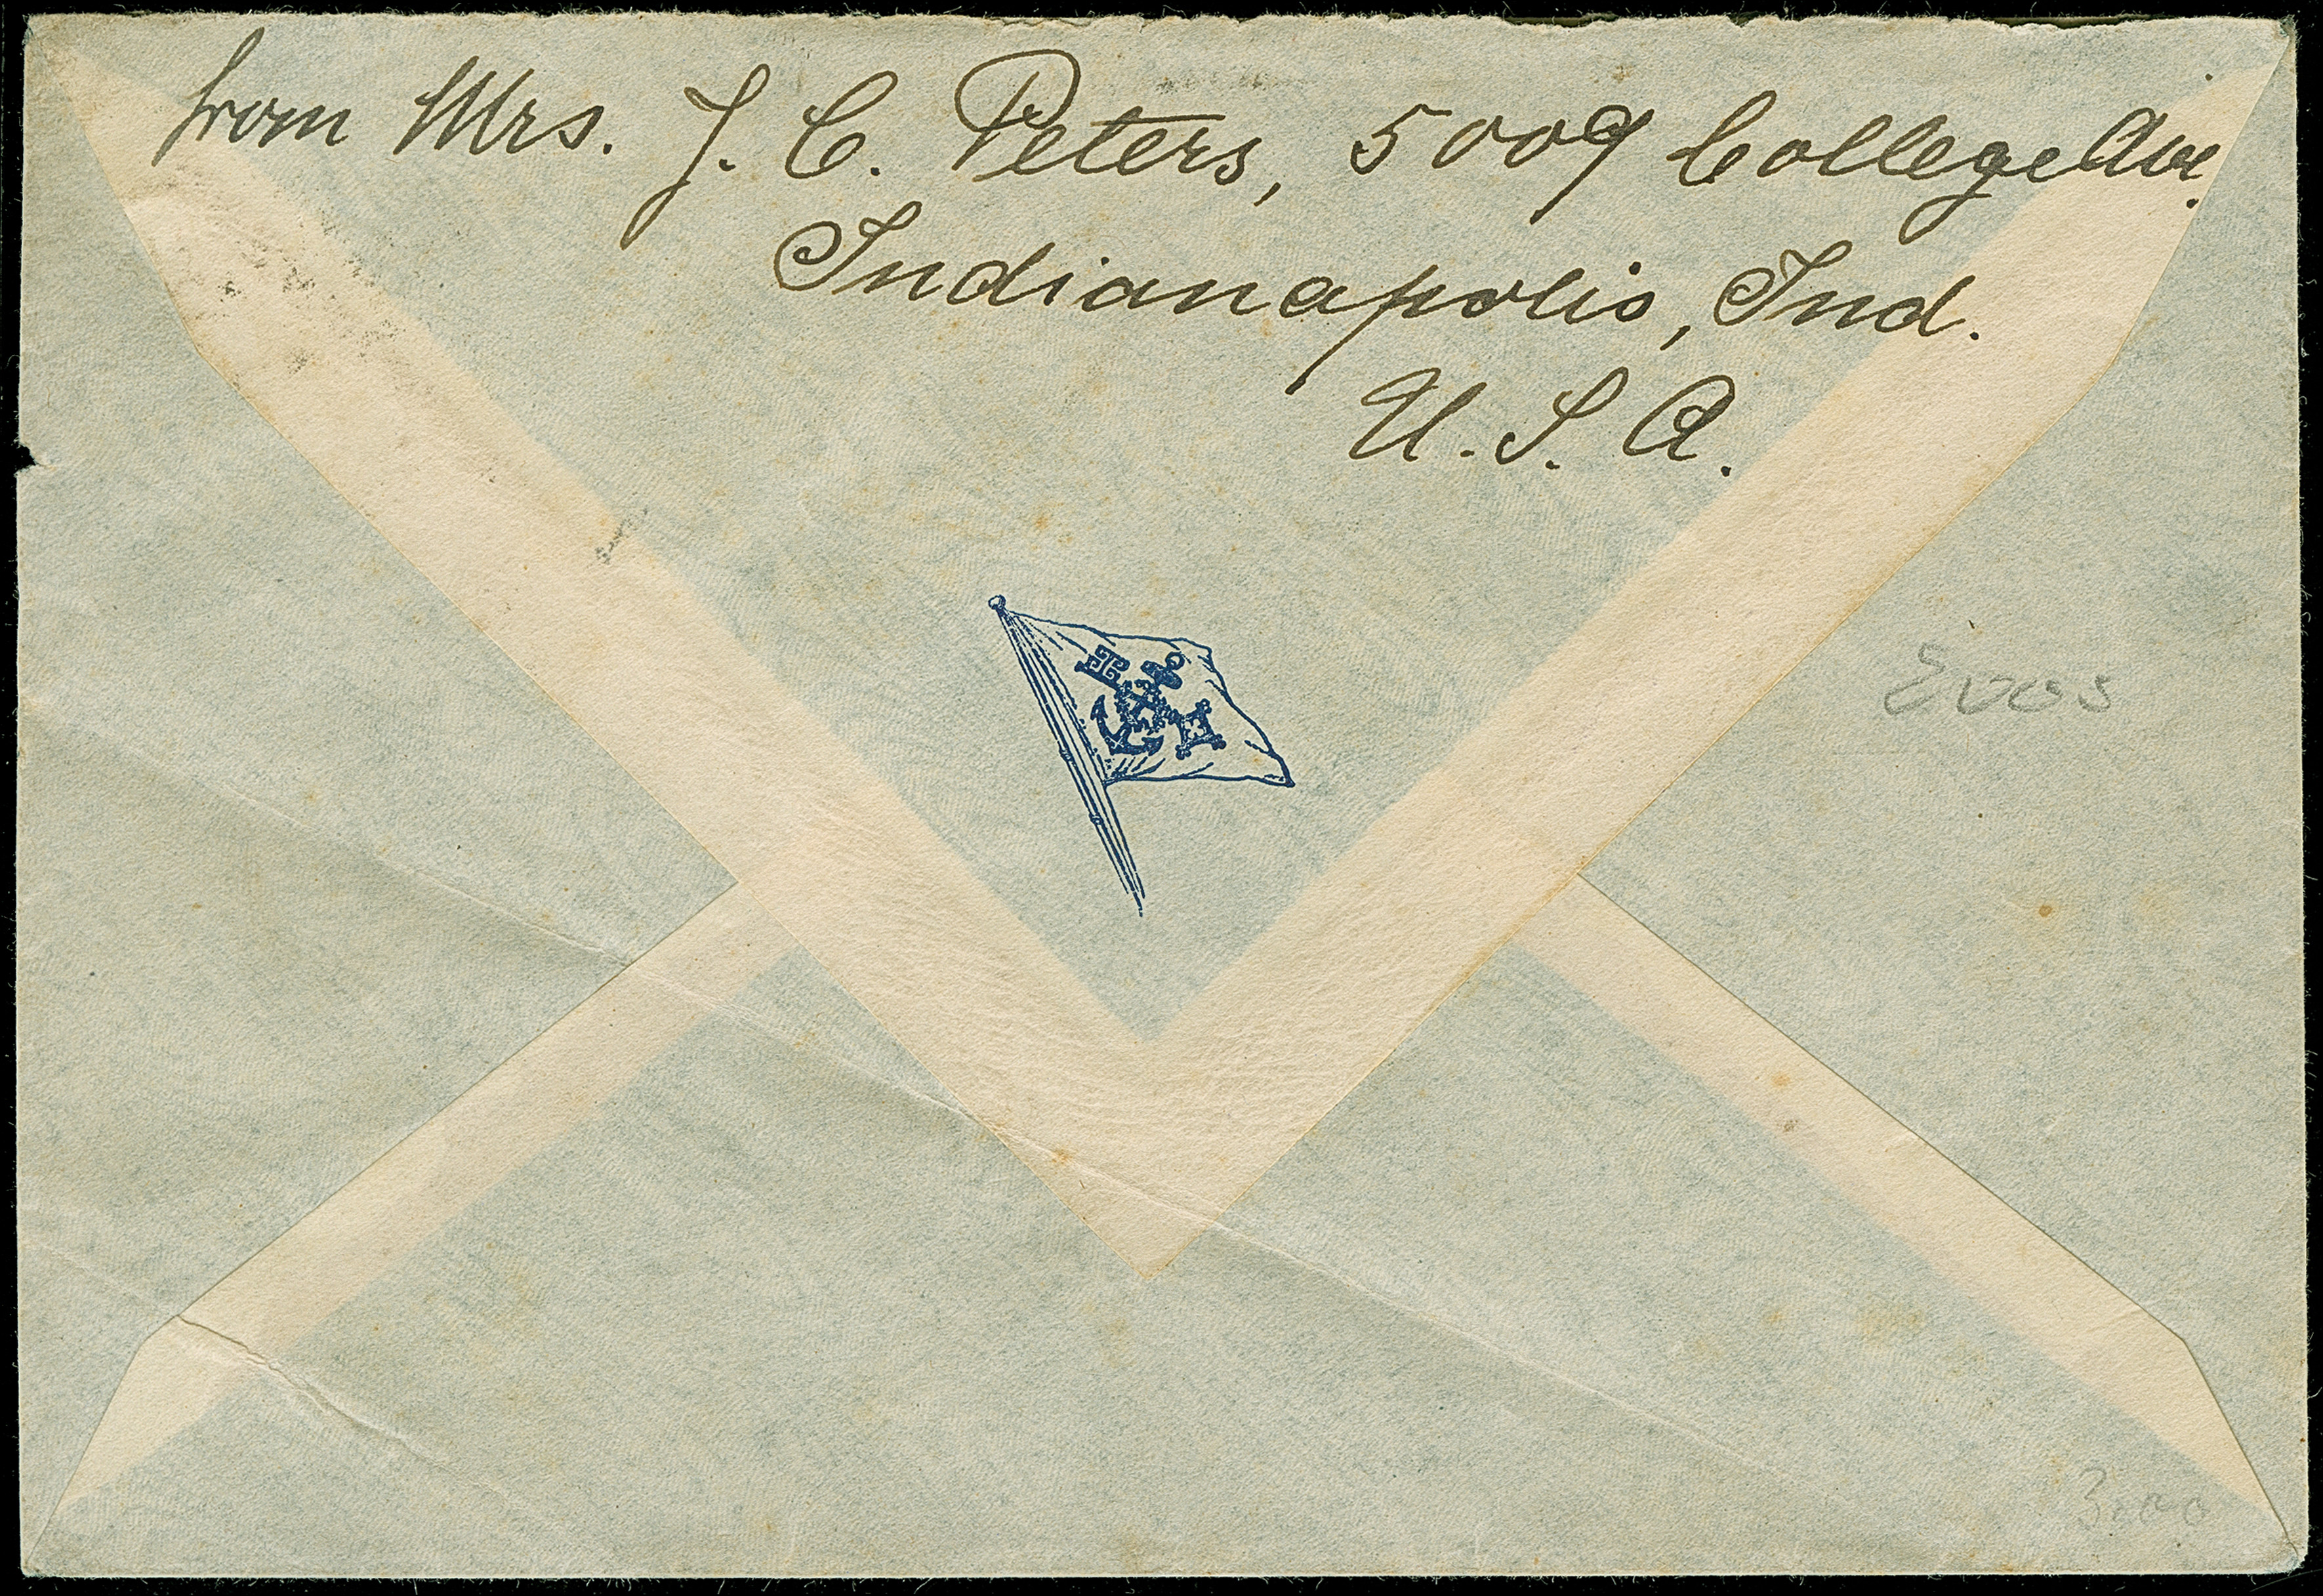 from Mrs. J. C. Peters, 5009 College Ave.
Indianapolis, Ind.
U. S. A.
3.00